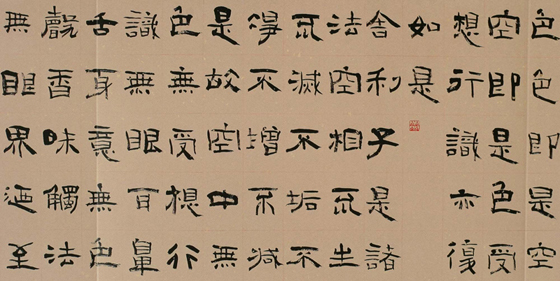 色色即是空
空即是色受
想行識亦復
如是
舍利子是諸
法空相不生
不滅不垢不
淨不增不減
是故空中無
色無受想行
識無眼耳鼻
舌身意無色
聲香味觸法
無眼界迺至